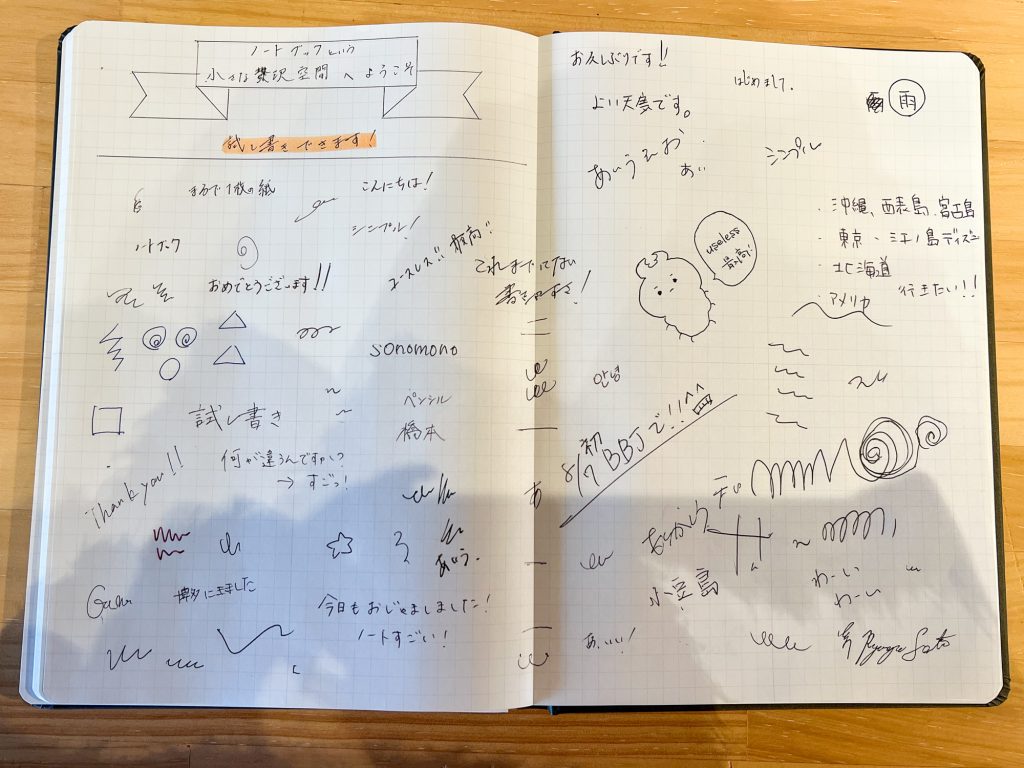 ノートブックという
小さな贅沢空間へようこそ
試し書きできます!
まるで1枚の紙
こんにちは!
シンプル!
ノートブック
おめでとうございます!!
ユースレス!! 最高!!
これまでにない
書きやすさ!
sonomono
ペンシル
橋本
試し書き
何が違うんですか?
→ すごっ!
Thank you!!
あ
あいう.
博多にきました
今日もおじゃましました!
ノートすごい!
お久しぶりです!!
はじめまして.
雨
よい天気です。
あいうえお
あい
シンプル
useless
最高!!
・沖縄、西表島、宮古島
・東京・
・北海道
・アメリカ 行きたい!!
안녕
8/7 初 BBJで!!
小豆島
わーい
わーい
あ、いい!